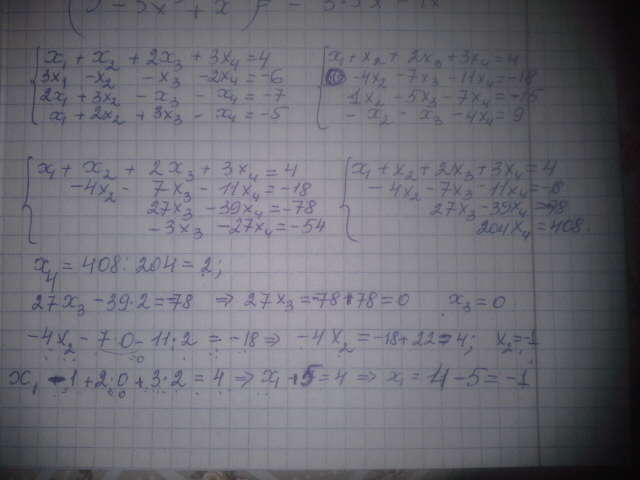 x₁ + x₂ + 2x₃ + 3x₄ = 4
3x₁ - x₂ - x₃ - 2x₄ = -6
2x₁ + 3x₂ - x₃ - x₄ = -7
x₁ + 2x₂ + 3x₃ - x₄ = -5
x₁ + x₂ + 2x₃ + 3x₄ = 4
-4x₂ - 7x₃ - 11x₄ = -18
1x₂ - 5x₃ - 7x₄ = -15
- x₂ - x₃ - 4x₄ = 9
x₁ + x₂ + 2x₃ + 3x₄ = 4
-4x₂ - 7x₃ - 11x₄ = -18
27x₃ - 39x₄ = -78
-3x₃ - 27x₄ = -54
x₁ + x₂ + 2x₃ + 3x₄ = 4
-4x₂ - 7x₃ - 11x₄ = -18
27x₃ - 39x₄ = -78
204x₄ = 408.
x₄ = 408 : 204 = 2;
27x₃ - 39·2 = -78 ⇒ 27x₃ = -78 + 78 = 0 x₃ = 0
-4x₂ - 7·0 - 11·2 = -18 ⇒ -4x₂ = -18 + 22 = 4; x₂ = -1
x₁ - 1 + 2·0 + 3·2 = 4 ⇒ x₁ + 5 = 4 ⇒ x₁ = 4 - 5 = -1